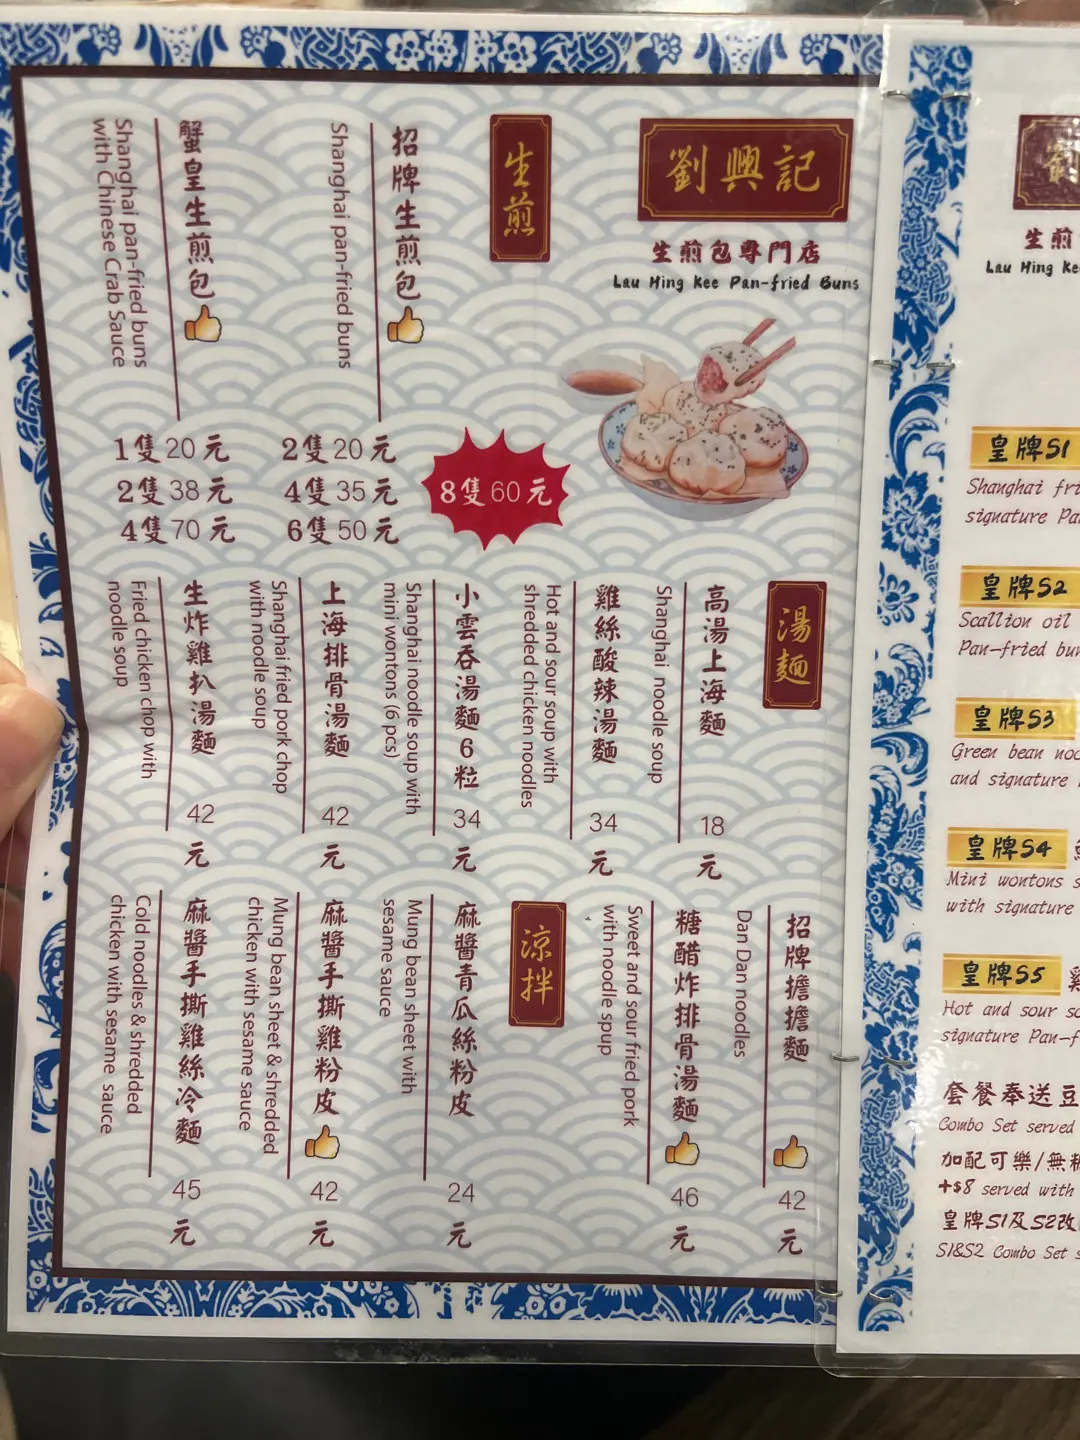 劉興記
生煎包專門店
Lau Hing Kee Pan-fried Buns
生煎
招牌生煎包
Shanghai pan-fried buns
2隻20元
4隻35元
6隻50元
8隻60元
蟹皇生煎包
Shanghai pan-fried buns
with Chinese Crab Sauce
1隻20元
2隻38元
4隻70元
湯麵
高湯上海麵
Shanghai noodle soup
18元
雞絲酸辣湯麵
Hot and sour soup with
shredded chicken noodles
34元
小雲吞湯麵6粒
Shanghai noodle soup with
mini wontons (6 pcs)
34元
上海排骨湯麵
Shanghai fried pork chop
with noodle soup
42元
生炸雞扒湯麵
Fried chicken chop with
noodle soup
42元
招牌擔擔麵
Dan Dan noodles
42元
糖醋炸排骨湯麵
Sweet and sour fried pork
with noodle spup
46元
涼拌
麻醬青瓜絲粉皮
Mung bean sheet with
sesame sauce
24元
麻醬手撕雞粉皮
Mung bean sheet & shredded
chicken with sesame sauce
42元
麻醬手撕雞絲冷麵
Cold noodles & shredded
chicken with sesame sauce
45元
生煎
Lau Hing Ke
皇牌S1
Shanghai fri
signature Pa
皇牌S2
Scallion oil
Pan-fried bu
皇牌S3
Green bean noo
and signature
皇牌S4
Mini wontons s
with signature
皇牌S5
Hot and sour so
signature Pan-f
套餐奉送豆
Combo Set served
加配可樂/無糖
+$8 served with
皇牌S1及S2改
S1&S2 Combo Set s